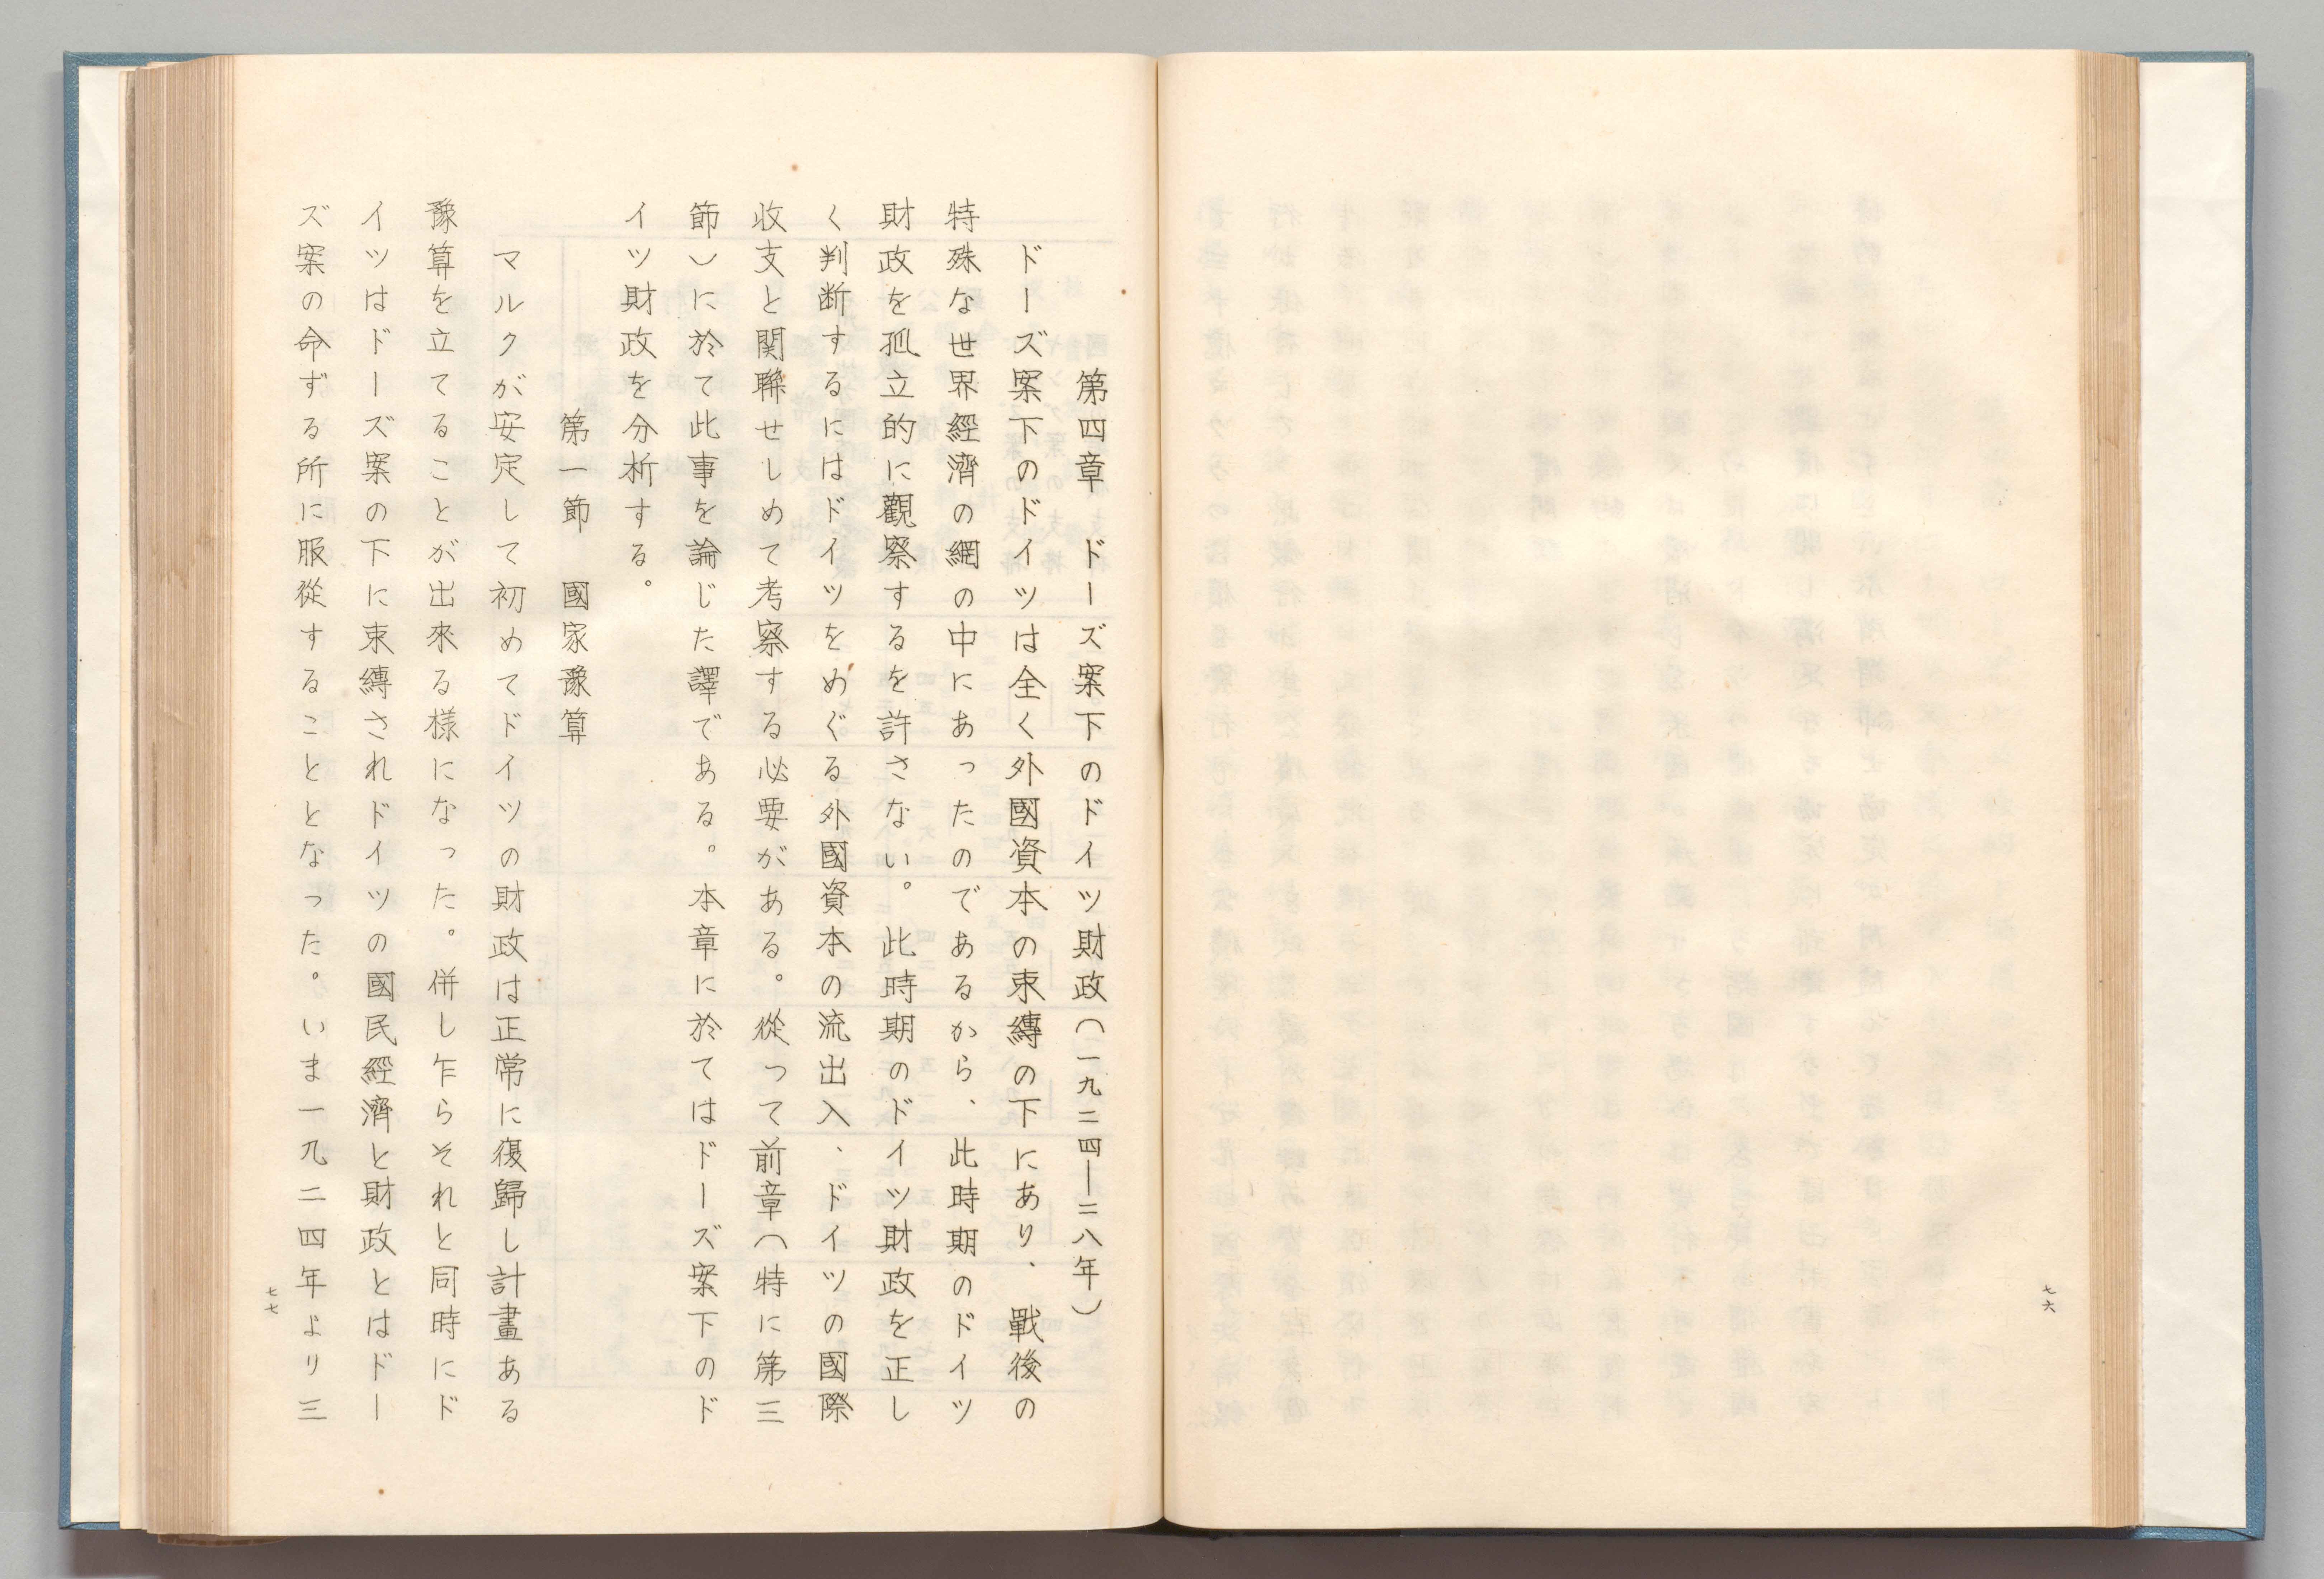 七六
第四章　ドーズ案下のドイツ財政（一九二四―二八年）
ドーズ案下のドイツは全く外國資本の束縛の下にあり、戰後の
特殊な世界經濟の網の中にあったのであるから、此時期のドイツ
財政を孤立的に觀察するを許さない。此時期のドイツ財政を正し
く判断するにはドイツをめぐる外國資本の流出入、ドイツの國際
收支と関聯せしめて考察する必要がある。從って前章（特に第三
節）に於て此事を論じた譯である。本章に於てはドーズ案下のド
イツ財政を分析する。
第一節　國家豫算
マルクが安定して初めてドイツの財政は正常に復歸し計畫ある
豫算を立てることが出來る樣になった。併し乍らそれと同時にド
イツはドーズ案の下に束縛されドイツの國民經濟と財政とはドー
ズ案の命ずる所に服從することとなった。いま一九二四年より三
七七